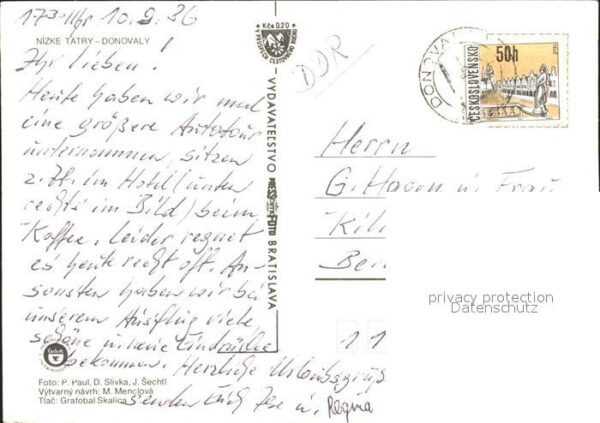 173-Uhr 10.9.86
NÍZKE TATRY – DONOVALY
Ihr Lieben!
Heute haben wir mal
eine größere Autotour
unternommen, sitzen
z. Zt. im Hotel (unten
rechts im Bild) beim
Kaffee. Leider regnet
es heute recht oft. An-
sonsten haben wir bei
unserem Ausflug viele
schöne neue Eindrücke
bekommen. Herzliche Urlaubsgrüße
senden Euch u. Regina
Foto: P. Paul, D. Slivka, J. Šechtl
Výtvarný návrh: M. Menclová
Tlač: Grafobal Skalica
Kčs 0,20
VYDAVATEĽSTVO
BRATISLAVA
DDR
DONOVALY
50h
ČESKOSLOVENSKO
Herrn
G. Hagen u. Frau
privacy protection
Datenschutz
11